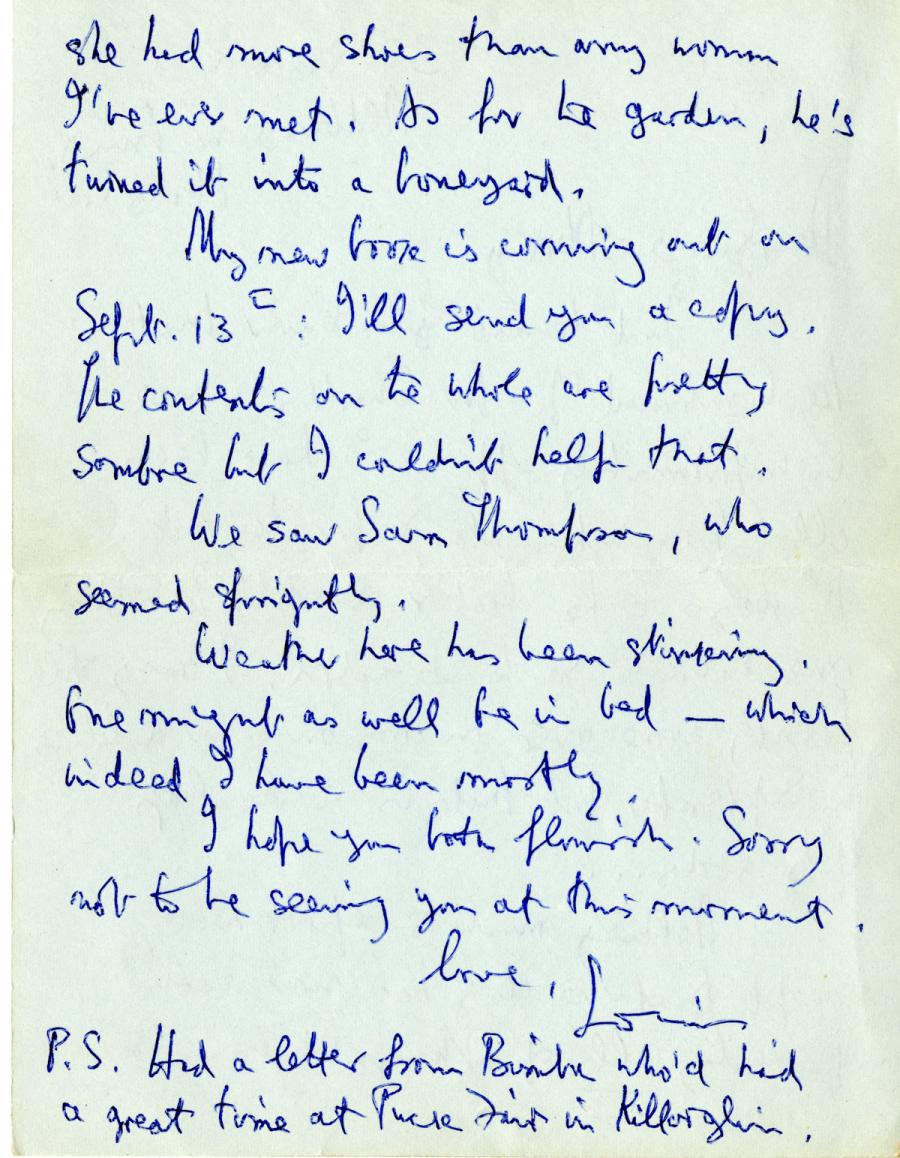 she had more shoes than any woman
I've ever met. As for the garden, he's
turned it into a boneyard.
My new book is coming out on
Sept. 13th: I'll send you a copy.
The contents on the whole are pretty
sombre but I couldn't help that.
We saw Sam Thompson, who
seemed sprightly.
Weather here has been
One might as well be in bed — which
indeed I have been mostly.
I hope you both flourish. Sorry
not to be seeing you at this moment.
love, Louis
P.S. Had a letter from Bimba who'd had
a great time at Puck Fair in Killorglin.